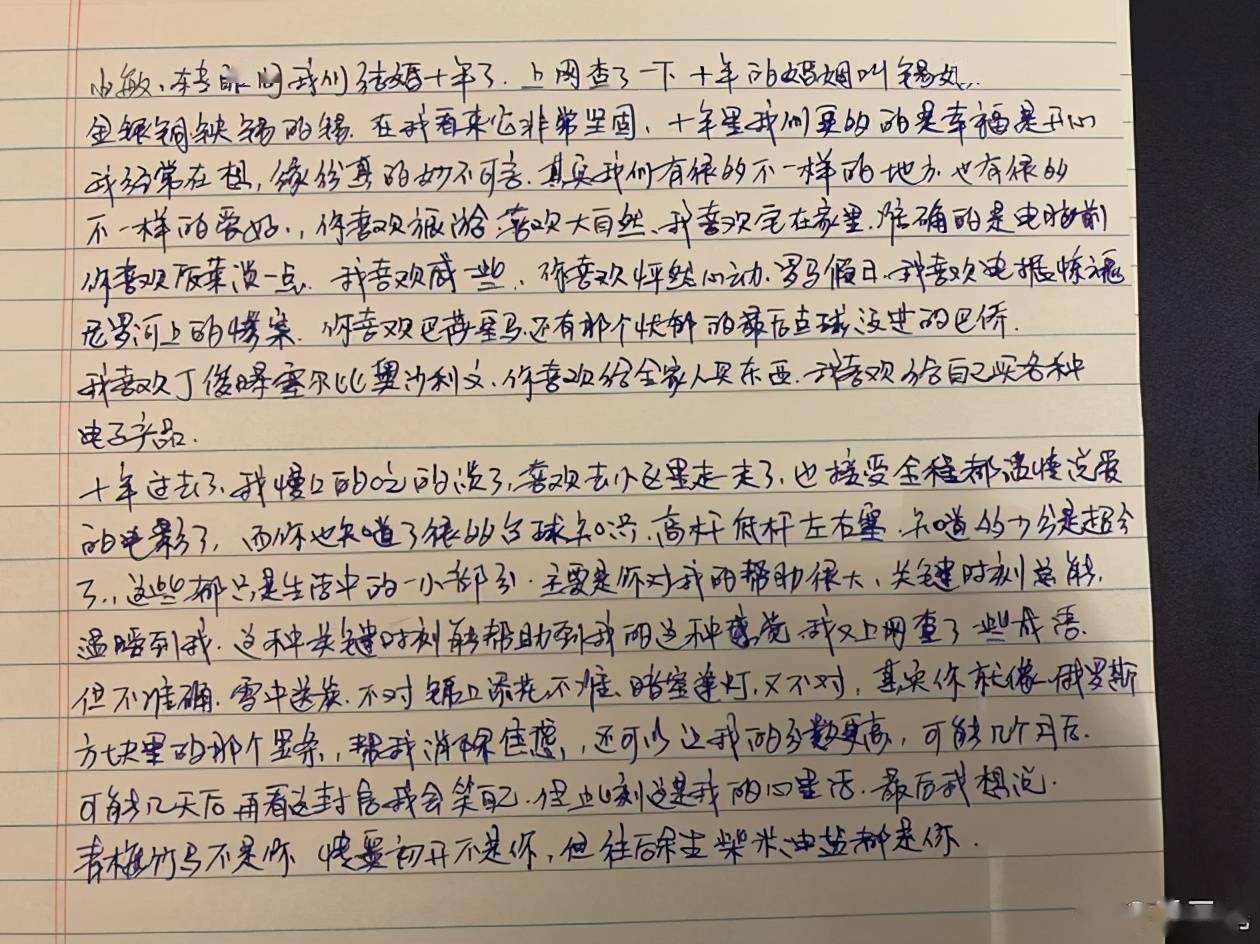 小敏,转眼间我们结婚十年了.上网查了一下十年的婚姻叫锡婚.
金银铜铁锡的锡.在我看来它非常坚固、十年里我们更多的是幸福是开心
我经常在想,缘份真的妙不可言.其实我们有很多不一样的地方.也有很多
不一样的爱好.,你喜欢旅游喜欢大自然、我喜欢宅在家里.准确的是电脑前
你喜欢饭菜淡一点.我喜欢咸一些、你喜欢怦然心动.罗马假日.我喜欢电锯惊魂
尼罗河上的惨案.你喜欢巴蒂罗马还有那个忧郁的最后点球没进的巴乔.
我喜欢丁俊晖塞尔比奥沙利文.你喜欢给全家人买东西.我喜欢给自己买各种
电子产品.
十年过去了.我慢慢的吃的淡了,喜欢去小区里走一走了,也接受全程都温情说爱
的电影了,而你也知道了很多台球知识.高杆低杆左右塞.知道多少分是超分
了.,这些都只是生活中的一小部分.主要是你对我的帮助很大、关键时刻总能.
温暖到我.这种关键时刻能帮助到我的这种感觉.我又上网查了一些成语.
但不准确.雪中送炭.不对 锦上添花不准.暗室逢灯,又不对,其实你就像俄罗斯
方块里的那个竖条,帮我消除焦虑,还可以让我的分数更高,可能几个月后.
可能几天后再看这封信我会笑自己.但此刻这是我的心里话.最后我想说.
青梅竹马不是你 情窦初开不是你,但往后余生柴米油盐都是你.